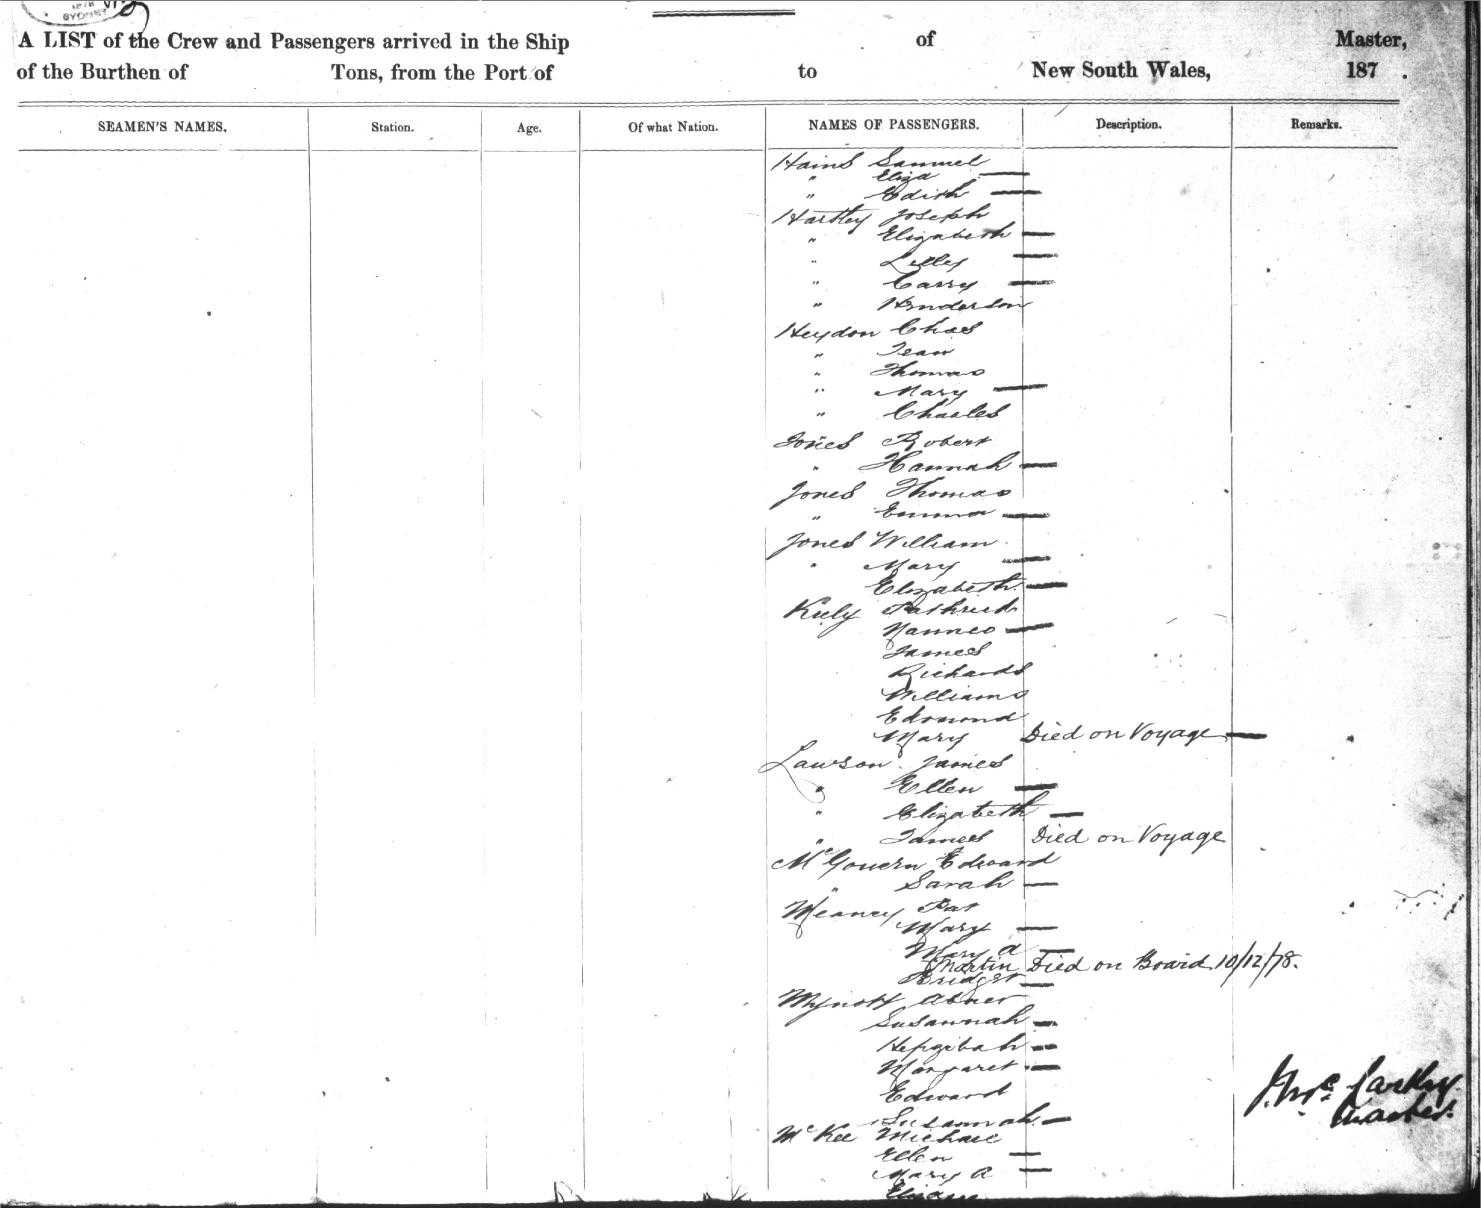 SYDNEY
A LIST of the Crew and Passengers arrived in the Ship of Master,
of the Burthen of Tons, from the Port of to New South Wales, 187 .
SEAMEN'S NAMES. Station. Age. Of what Nation. NAMES OF PASSENGERS. Description. Remarks.
Hains Samuel
" Eliza —
" Edith —
Hartley Joseph
" Elizabeth —
" Lilley —
" Carry —
" Henderson
Heydon Chas
" Jean
" Thomas
" Mary —
" Charles
Jones Robert
" Hannah —
Jones Thomas
" Emma —
Jones William
" Mary —
Elizabeth —
Kiely
—
James
Richard
William
Edmond
Mary Died on Voyage —
Lawson James
" Ellen —
" Elizabeth —
" James Died on Voyage
McGovern Edward
" Sarah —
Meaney Pat
Mary —
Mary A —
Martin Died on Board 10/12/78.
Bridget —
Mynott Abner
Susannah —
Hepzibah —
Margaret —
Edward
Susannah —
McKee Michael
Ellen —
Mary A —
J. McCarthy
Master